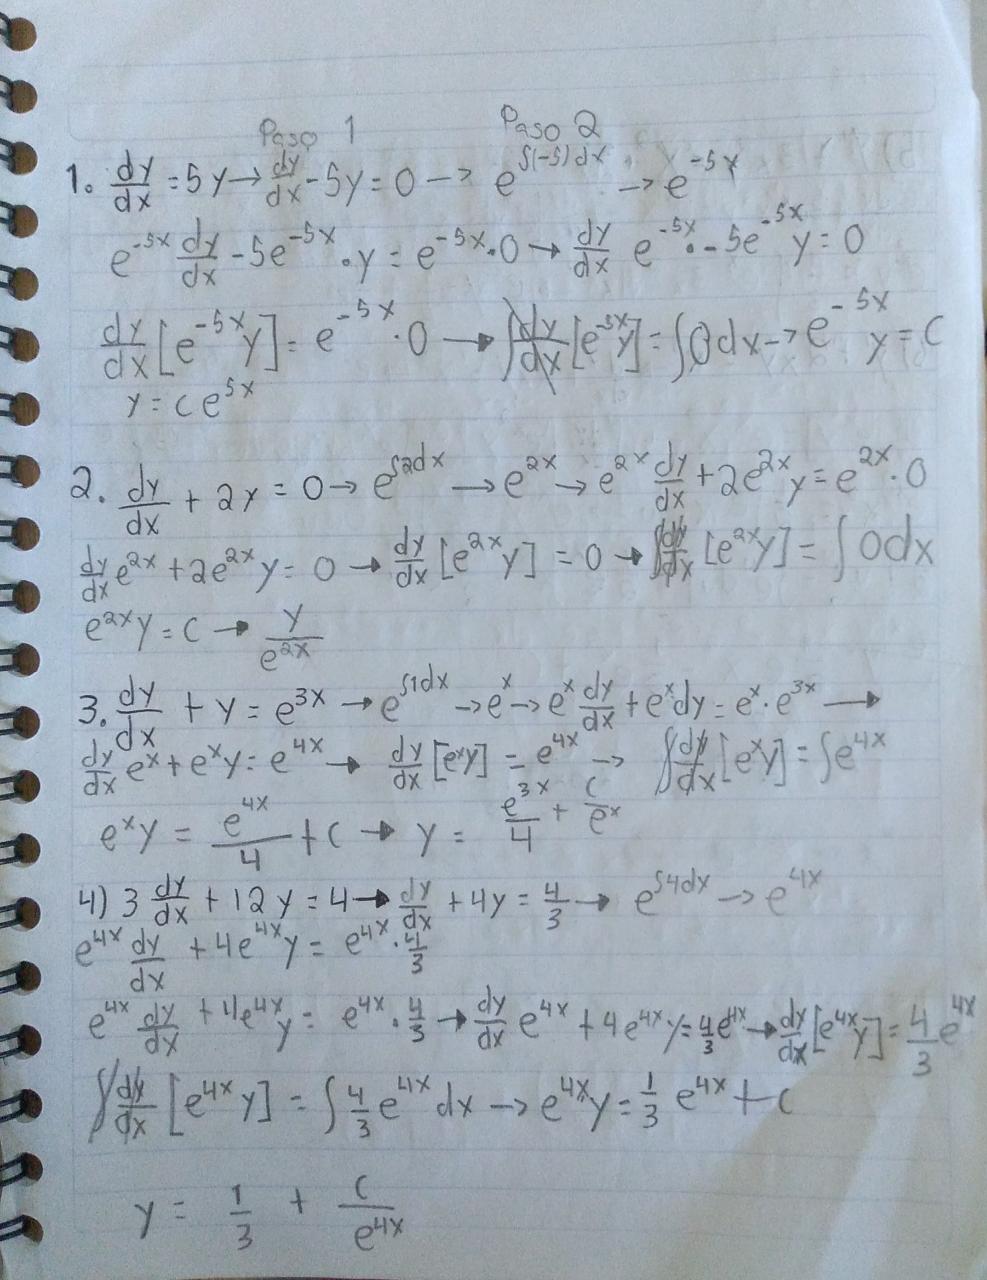 Paso 1 Paso 2
1. dy/dx = 5y → dy/dx - 5y = 0 → e^∫(-5)dx → e^-5x
e^-5x dy/dx - 5e^-5x · y = e^-5x · 0 → dy/dx e^-5x · - 5e^-5x y = 0
dy/dx [e^-5x y] = e^-5x · 0 → ∫dy/dx [e^-5x y] = ∫0dx → e^-5x y = c
y = ce^5x
2. dy/dx + 2y = 0 → e^∫2dx → e^2x → e^2x dy/dx + 2e^2x y = e^2x · 0
dy/dx e^2x + 2e^2x y = 0 → dy/dx [e^2x y] = 0 → ∫dy/dx [e^2x y] = ∫0dx
e^2x y = c → y/e^2x
3. dy/dx + y = e^3x → e^∫1dx → e^x → e^x dy/dx + e^x dy = e^x · e^3x →
dy/dx e^x + e^x y = e^4x → dy/dx [e^x y] = e^4x → ∫dy/dx [e^x y] = ∫e^4x
e^x y = e^4x/4 + c → y = e^3x/4 + c/e^x
4) 3 dy/dx + 12y = 4 → dy/dx + 4y = 4/3 → e^∫4dx → e^4x
e^4x dy/dx + 4e^4x y = e^4x · 4/3
e^4x dy/dx + 4e^4x y = e^4x · 4/3 → dy/dx e^4x + 4e^4x y = 4/3 e^4x → dy/dx [e^4x y] = 4/3 e^4x
∫dy/dx [e^4x y] = ∫4/3 e^4x dx → e^4x y = 1/3 e^4x + c
y = 1/3 + c/e^4x